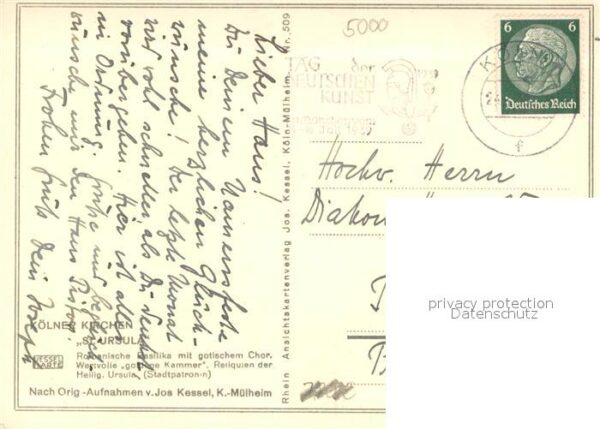 5000
6 6
Deutsches Reich
KÖLN
TAG der
DEUTSCHEN
KUNST
1939
f
Lieber Hans!
Zu Deinem Namensfeste
meine herzlichen Glück-
wünsche! Der letzte Monat
wird wohl schneller als Du denkst,
vorübergehen. Hier ist alles
in Ordnung. Grüße und
wünsche mir den Hans
Frohen Gruß Dein
Rhein Ansichtskartenverlag Jos. Kessel, Köln-Mülheim Nr. 509
Hochw. Herrn
Diakon
privacy protection
Datenschutz
KÖLNER KIRCHEN
„ST. URSULA"
KESSEL
KARTE
Romanische Basilika mit gotischem Chor.
Wertvolle „goldene Kammer". Reliquien der
Heilig. Ursula. (Stadtpatronin)
Nach Orig.-Aufnahmen v. Jos Kessel, K.-Mülheim